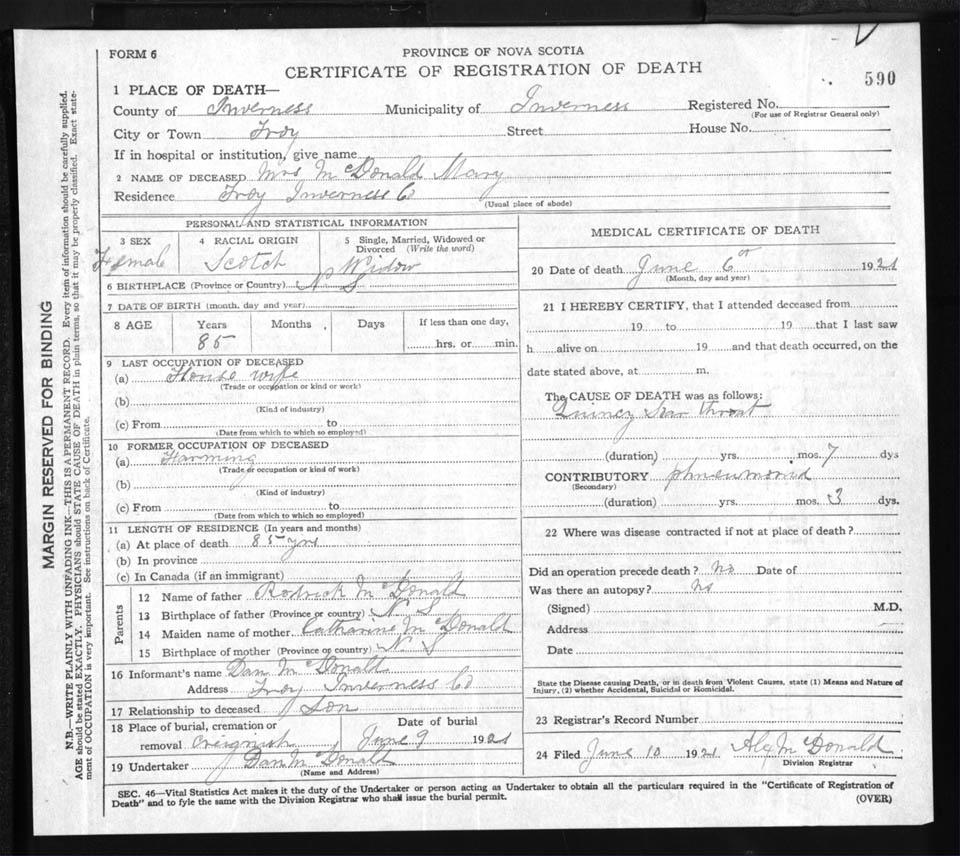 FORM 6
PROVINCE OF NOVA SCOTIA
CERTIFICATE OF REGISTRATION OF DEATH
590
1 PLACE OF DEATH—
County of Inverness Municipality of Inverness Registered No.
(For use of Registrar General only)
City or Town Troy Street House No.
If in hospital or institution, give name
2 NAME OF DECEASED Mrs McDonald Mary
Residence Troy Inverness Co
(Usual place of abode)
PERSONAL AND STATISTICAL INFORMATION
3 SEX 4 RACIAL ORIGIN 5 Single, Married, Widowed or Divorced (Write the word)
Female Scotch Widow
6 BIRTHPLACE (Province or Country) N S
7 DATE OF BIRTH (month, day and year)
8 AGE Years Months Days If less than one day,
85 hrs. or min.
9 LAST OCCUPATION OF DECEASED
(a) House wife
(Trade or occupation or kind or work)
(b)
(Kind of industry)
(c) From to
(Date from which to which so employed)
10 FORMER OCCUPATION OF DECEASED
(a) Farming
(Trade or occupation or kind of work)
(b)
(Kind of industry)
(c) From to
(Date from which to which so employed)
11 LENGTH OF RESIDENCE (In years and months)
(a) At place of death 85 yrs
(b) In province
(c) In Canada (if an immigrant)
Parents
12 Name of father Rodrick McDonald
13 Birthplace of father (Province or country) N S
14 Maiden name of mother Catharine McDonald
15 Birthplace of mother (Province or country) N S
16 Informant's name Dan McDonald
Address Troy Inverness Co
17 Relationship to deceased Son
18 Place of burial, cremation or Date of burial
removal Creignish June 9 1921
19 Undertaker Dan McDonald
(Name and Address)
MEDICAL CERTIFICATE OF DEATH
20 Date of death June 6th 1921
(Month, day and year)
21 I HEREBY CERTIFY, that I attended deceased from
19 to 19 that I last saw
h alive on 19 and that death occurred, on the
date stated above, at m.
The CAUSE OF DEATH was as follows:
Quincy Sore throat
(duration) yrs. mos. 7 dys
CONTRIBUTORY phneumonia
(Secondary)
(duration) yrs. mos. 3 dys.
22 Where was disease contracted if not at place of death?
Did an operation precede death? No Date of
Was there an autopsy? No
(Signed) M.D.
Address
Date
State the Disease causing Death, or in death from Violent Causes, state (1) Means and Nature of
Injury, (2) whether Accidental, Suicidal or Homicidal.
23 Registrar's Record Number
24 Filed June 10 1921 Alex McDonald
Division Registrar
SEC. 46—Vital Statistics Act makes it the duty of the Undertaker or person acting as Undertaker to obtain all the particulars required in the "Certificate of Registration of
Death" and to fyle the same with the Division Registrar who shall issue the burial permit. (OVER)
MARGIN RESERVED FOR BINDING
N.B.—WRITE PLAINLY WITH UNFADING INK—THIS IS A PERMANENT RECORD. Every item of information should be carefully supplied.
AGE should be stated EXACTLY. PHYSICIANS should STATE CAUSE OF DEATH in plain terms, so that it may be properly classified. Exact state-
ment of OCCUPATION is very important. See instructions on back of Certificate.